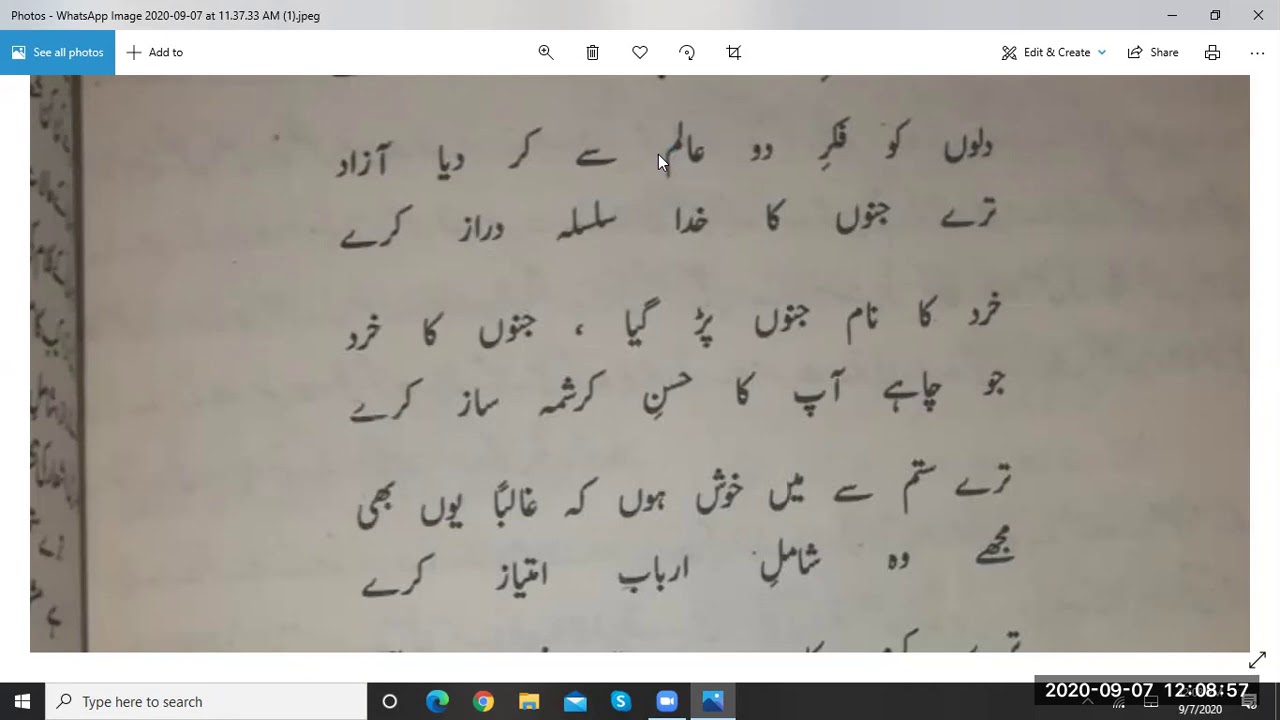 Photos - WhatsApp Image 2020-09-07 at 11.37.33 AM (1).jpeg
See all photos
Add to
Edit & Create
Share
دلوں کو فکرِ دو عالم سے کر دیا آزاد
ترے جنوں کا خدا سلسلہ دراز کرے
خرد کا نام جنوں پڑ گیا ، جنوں کا خرد
جو چاہے آپ کا حسنِ کرشمہ ساز کرے
ترے ستم سے میں خوش ہوں کہ غالباً یوں بھی
مجھے وہ شاملِ اربابِ امتیاز کرے
Type here to search
2020-09-07 12:08:57
9/7/2020